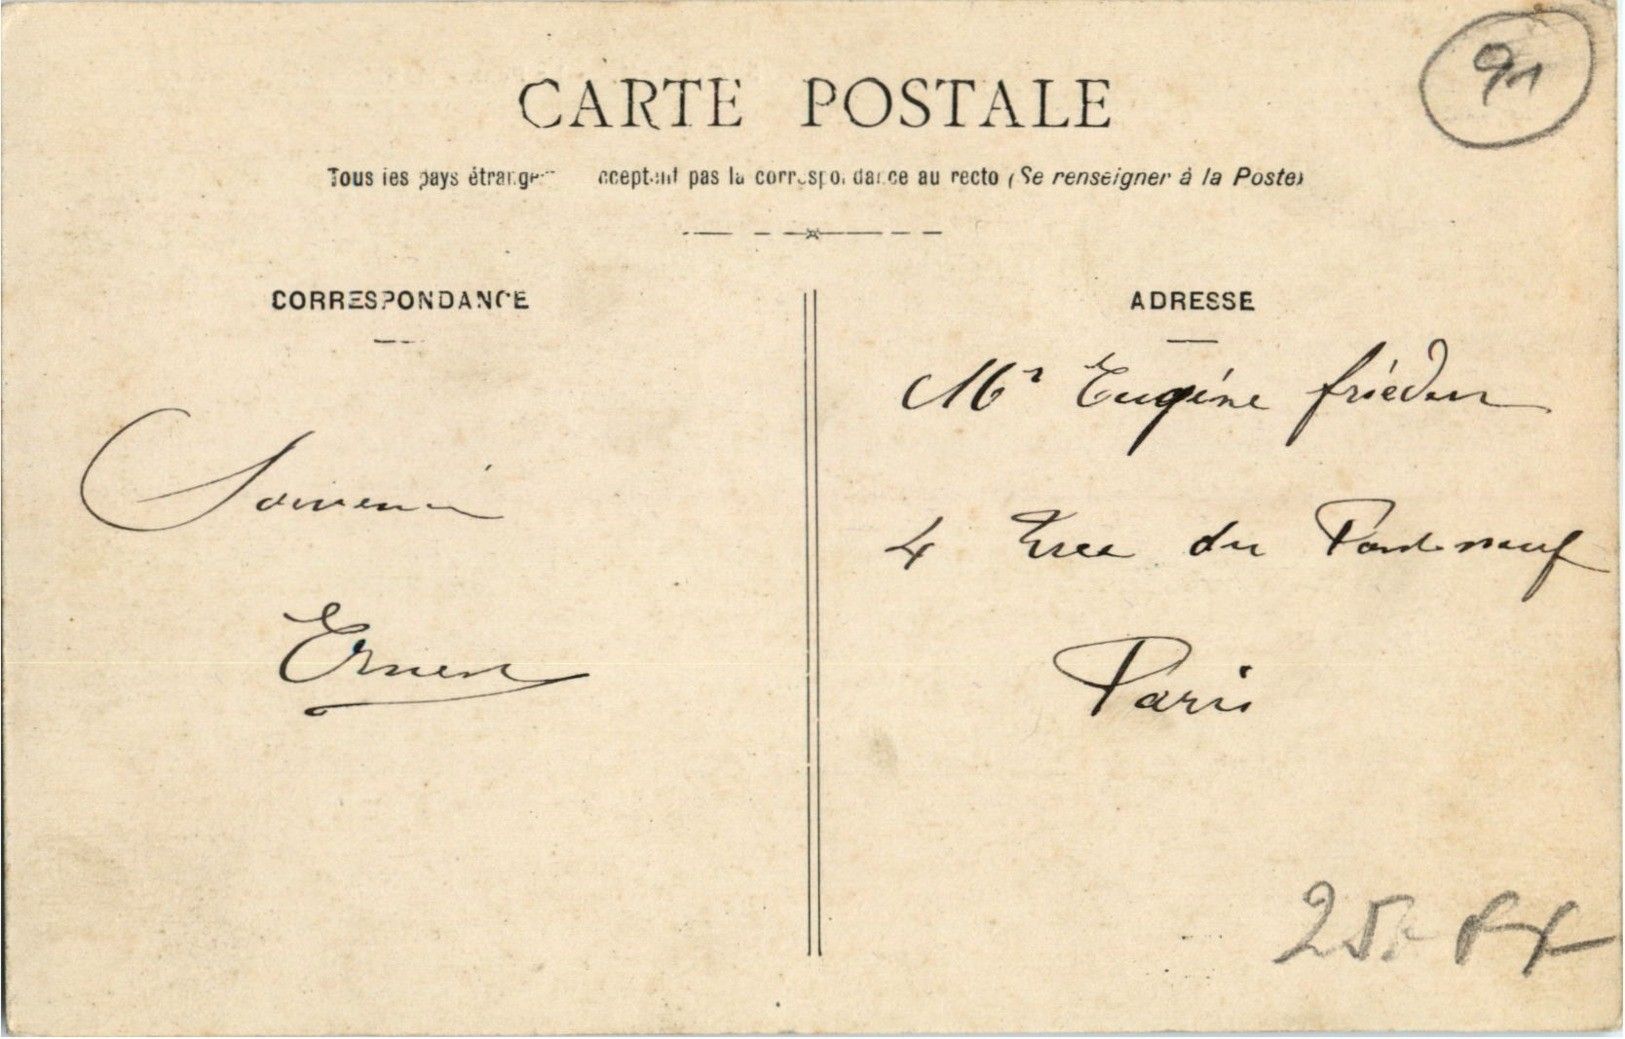 91
CARTE POSTALE
Tous les pays étrangers acceptent pas la correspondance au recto (Se renseigner à la Poste)
CORRESPONDANCE
ADRESSE
Souvenir
Ernest
Mr Eugéne frieden
4 rue du Pont-neuf
Paris
25